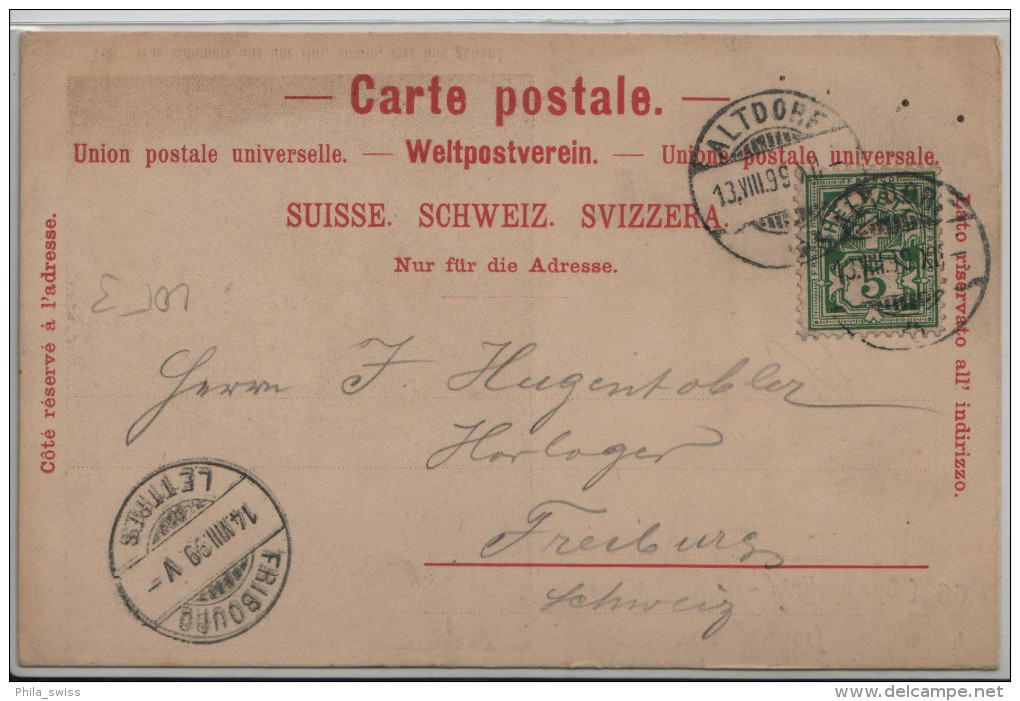 — Carte postale. —
Union postale universelle. — Weltpostverein. — Unione postale universale.
SUISSE. SCHWEIZ. SVIZZERA.
Nur für die Adresse.
Côté réservé à l'adresse.
Lato riservato all' indirizzo.
ALTDORF
13.VIII.99
HELVETIA
5
13.VIII.99
Herrn J. Hugentobler
Horloger
Freiburg
Schweiz
LETTRES
14.VIII.99.V–
FRIBOURG
Phila_swiss
delcampe.net